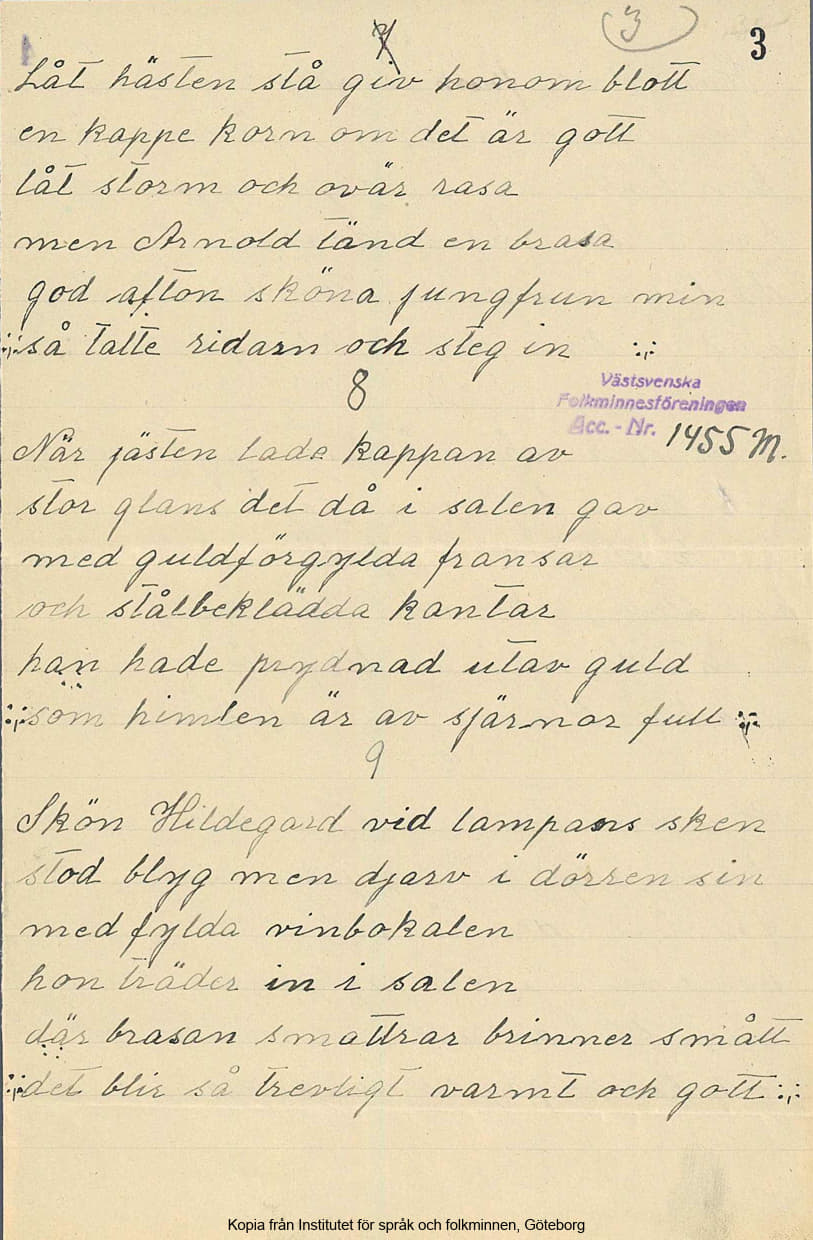 7
3
3
Låt hästen stå giv honom blott
en kappe korn om det är gott
låt storm och ovär rasa
men Arnold tänd en brasa
god afton sköna jungfrun min
:,: så talte ridarn och steg in :,:
8
Västsvenska
Folkminnesföreningen
Acc. - Nr. 1455 M.
När jästen lade kappan av
stor glans det då i salen gav
med guldförgylda fransar
och stålbeklädda kantar
han hade prydnad utav guld
:,: som himlen är av sjärnor full :,:
9
Skön Hildegard vid lampans sken
stod blyg men djarv i dörren sin
med fylda vinbokalen
hon träder in i salen
där brasan smattrar brinner smått
:,: det blir så trevligt varmt och gott :,:
Kopia från Institutet för språk och folkminnen, Göteborg